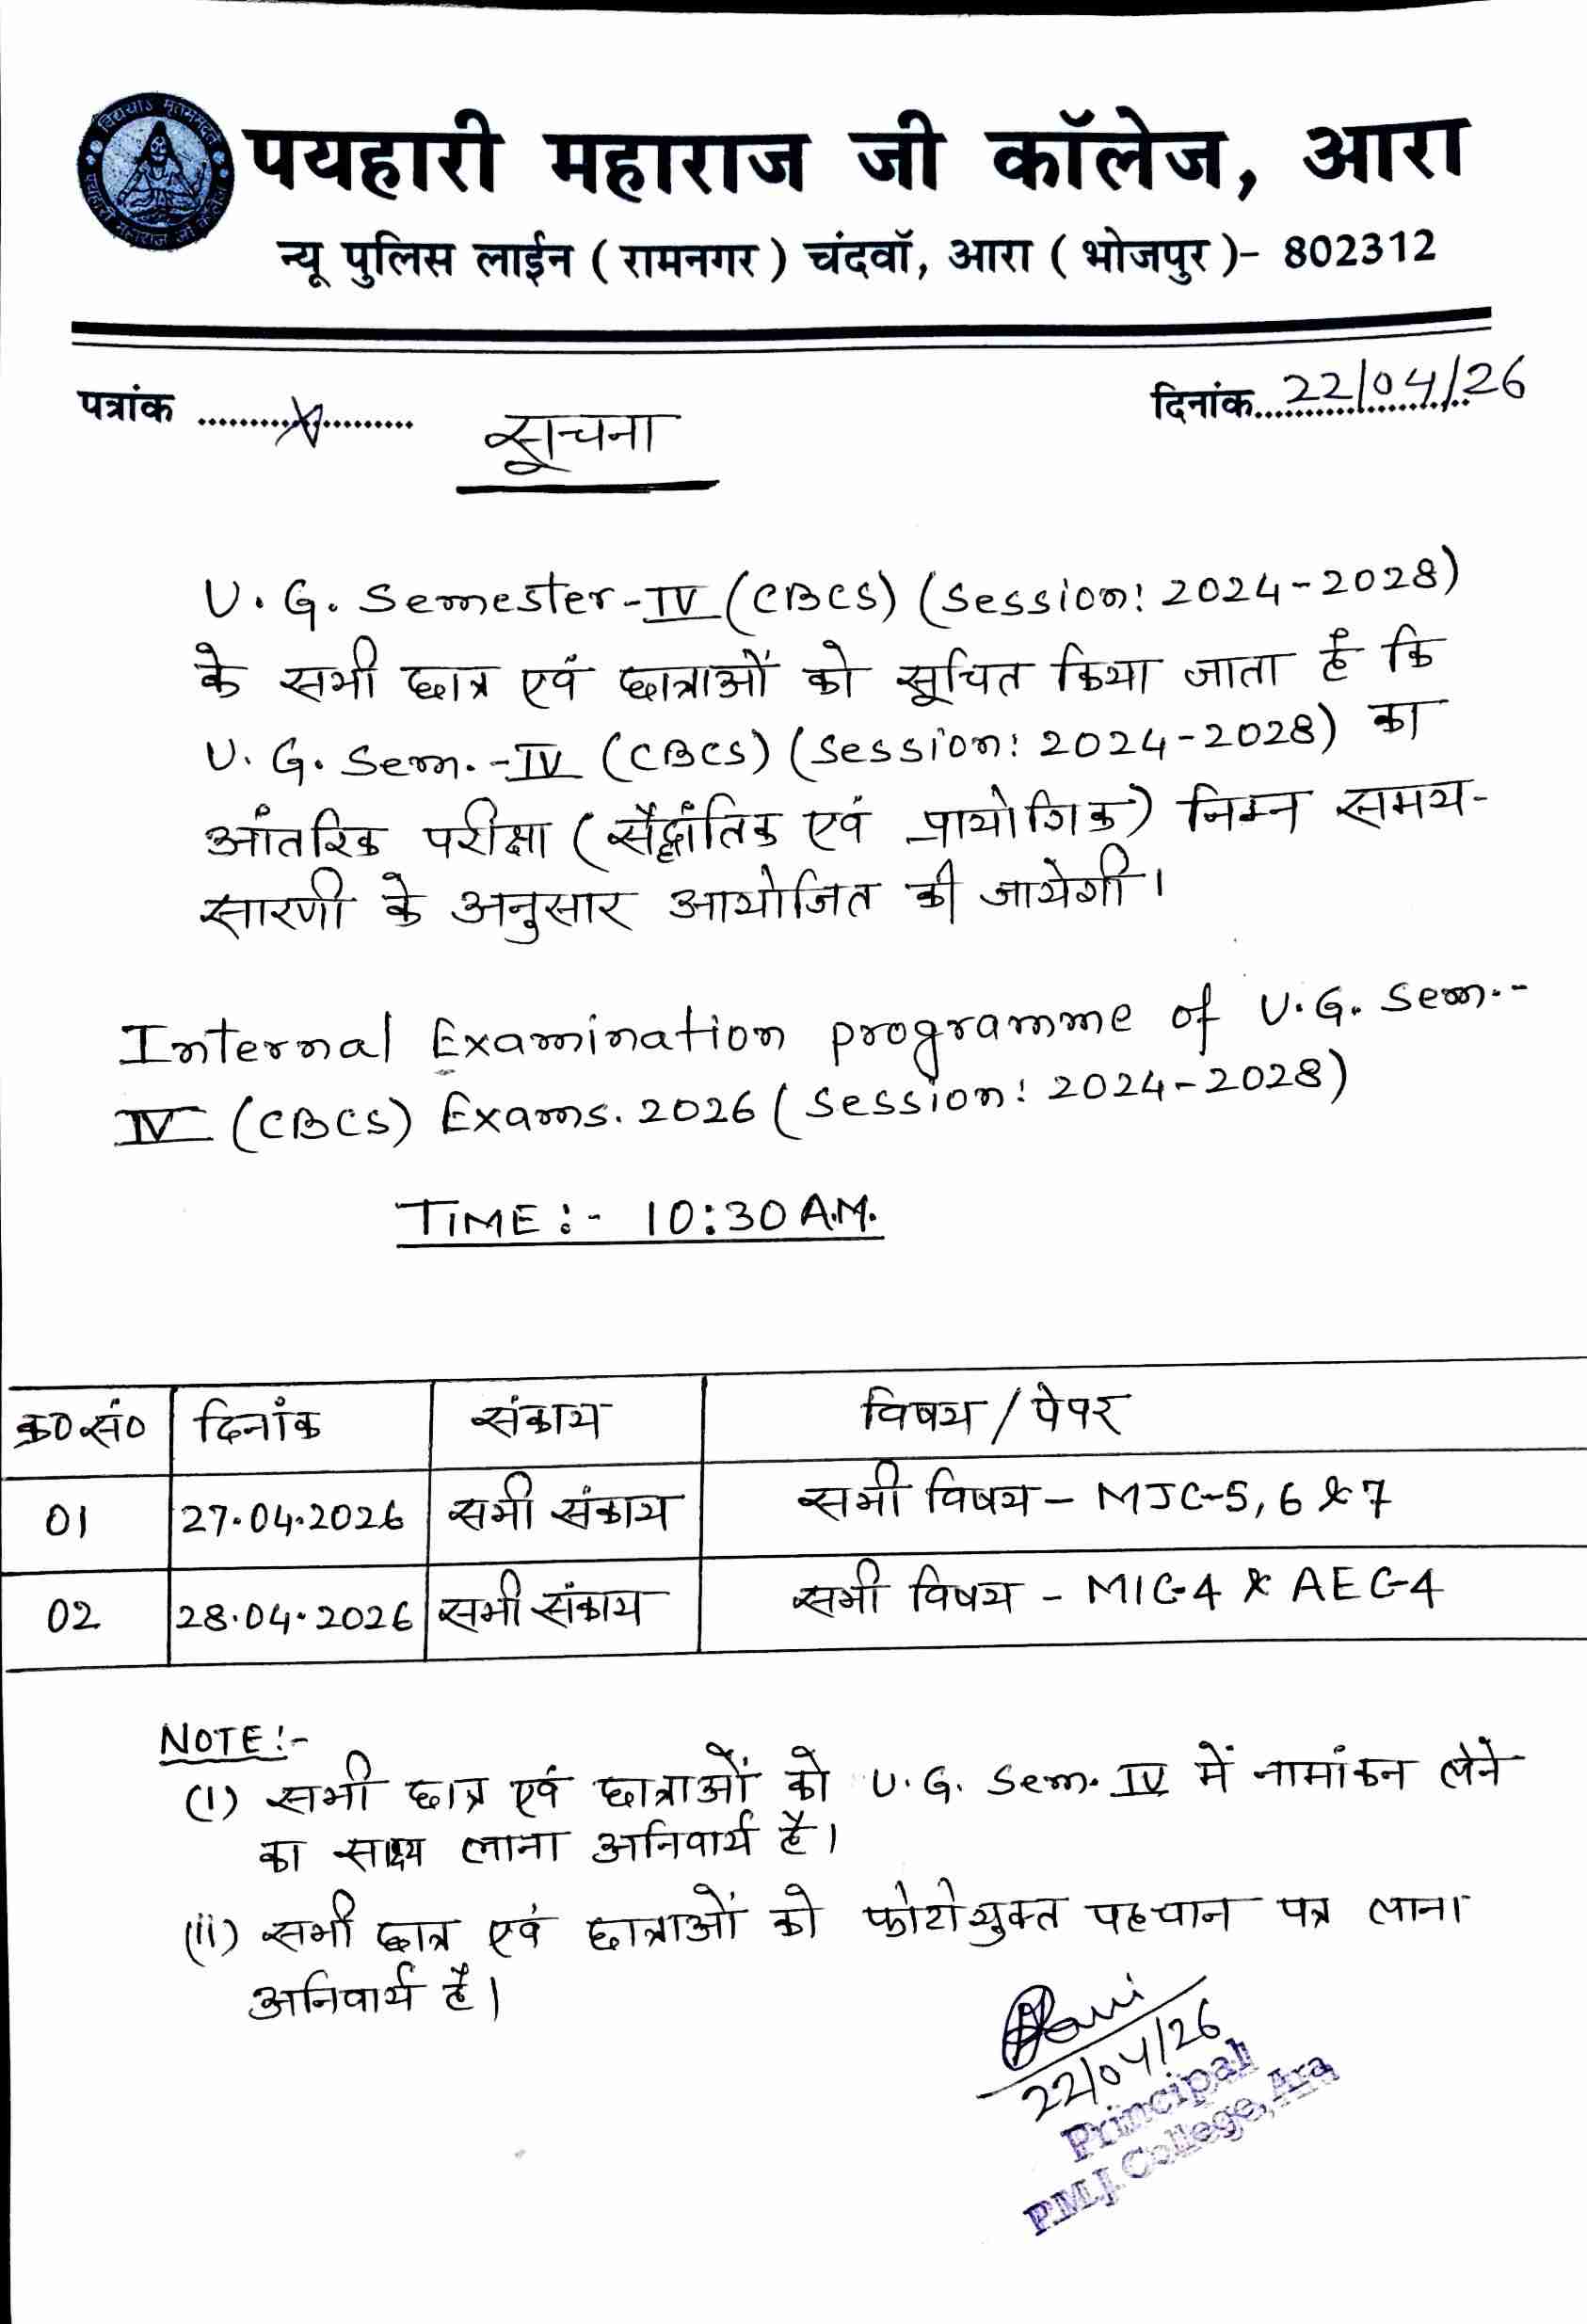 विद्ययाऽ मृतमश्नुते
पयहारी महाराज जी कॉलेज
पयहारी महाराज जी कॉलेज, आरा
न्यू पुलिस लाईन ( रामनगर ) चंदवॉ, आरा ( भोजपुर )- 802312
पत्रांक ....................
दिनांक 22/04/26
सूचना
U. G. Semester-IV (CBCS) (Session: 2024-2028)
के सभी छात्र एवं छात्राओं को सूचित किया जाता है कि
U. G. Sem.-IV (CBCS) (Session: 2024-2028) का
आंतरिक परीक्षा (सैद्धांतिक एवं प्रायोगिक) निम्न समय-
सारणी के अनुसार आयोजित की जायेगी।
Internal Examination programme of U.G. Sem.-
IV (CBCS) Exams. 2026 (Session: 2024-2028)
TIME:- 10:30 A.M.
क्र0 सं0 दिनांक संकाय विषय / पेपर
01 27.04.2026 सभी संकाय सभी विषय - MJC-5, 6 & 7
02 28.04.2026 सभी संकाय सभी विषय - MIC-4 & AEC-4
NOTE:-
(i) सभी छात्र एवं छात्राओं को U. G. Sem. IV में नामांकन लेने
का साक्ष्य लाना अनिवार्य है।
(ii) सभी छात्र एवं छात्राओं को फोटोयुक्त पहचान पत्र लाना
अनिवार्य है।
22/04/26
Principal
P.M.J. College, Ara